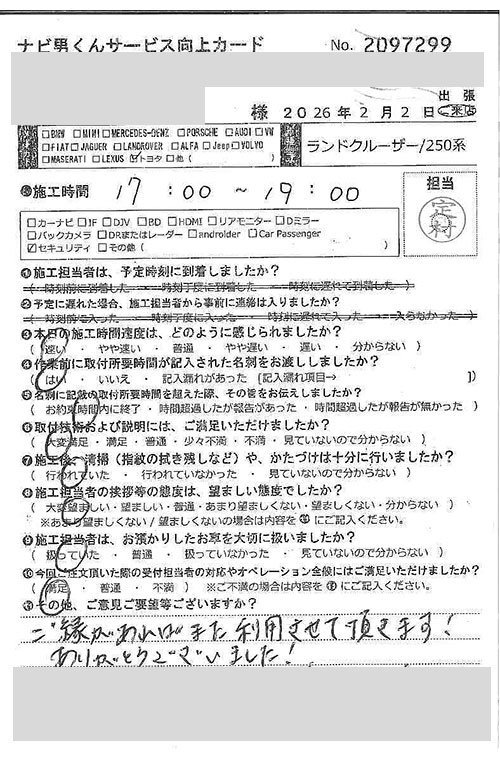 ナビ男くんサービス向上カード No. 2097299
出張
様 2026年2月2日 ご来店
□BMW □MINI □MERCEDES-BENZ □PORSCHE □AUDI □VW
□FIAT □JAGUER □LANDROVER □ALFA □Jeep □VOLVO
□MASERATI □LEXUS ☑トヨタ □他( )
ランドクルーザー/250系
施工時間 17:00 ~ 19:00
担当
□カーナビ □IF □DJV □BD □HDMI □リアモニター □Dミラー
□バックカメラ □DRまたはレーダー □androider □Car Passenger
☑セキュリティ □その他( )
❶施工担当者は、予定時刻に到着しましたか?
( 時刻前に到着した ・ 時刻丁度に到着した ・ 時刻に遅れて到着した )
❷予定に遅れた場合、施工担当者から事前に連絡は入りましたか?
( 時刻前に入った ・ 時刻丁度に入った ・ 時刻に遅れて入った ・ 入らなかった )
❸本日の施工時間速度は、どのように感じられましたか?
( 速い ・ やや速い ・ 普通 ・ やや遅い ・ 遅い ・ 分からない )
❹作業前に取付所要時間が記入された名刺をお渡ししましたか?
( はい ・ いいえ ・ 記入漏れがあった [記入漏れ項目→ ])
❺名刺に記載の取付所要時間を超えた際、その旨をお伝えしましたか?
( お約束時間内に終了 ・ 時間超過したが報告があった ・ 時間超過したが報告が無かった )
❻取付技術および説明には、ご満足いただけましたか?
( 大変満足 ・ 満足 ・ 普通 ・ 少々不満 ・ 不満 ・ 見ていないので分からない )
❼施工後、清掃(指紋の拭き残しなど)や、かたづけは十分に行いましたか?
( 行われていた ・ 行われていなかった ・ 見ていないので分からない )
❽施工担当者の挨拶等の態度は、望ましい態度でしたか?
( 大変望ましい・望ましい・普通・あまり望ましくない・望ましくない・分からない )
※あまり望ましくない / 望ましくないの場合は内容を⑪にご記入ください。
❾施工担当者は、お預かりしたお車を大切に扱いましたか?
( 扱っていた ・ 普通 ・ 扱っていなかった ・ 見ていないので分からない )
❿今回ご注文頂いた際の受付担当者の対応やオペレーション全般にはご満足いただけましたか?
( 満足 ・ 普通 ・ 不満 ) ※ご不満の場合は内容を⑪にご記入ください。
⓫その他、ご意見ご要望等ございますか?
ご縁があればまた利用させて頂きます!
ありがとうございました!